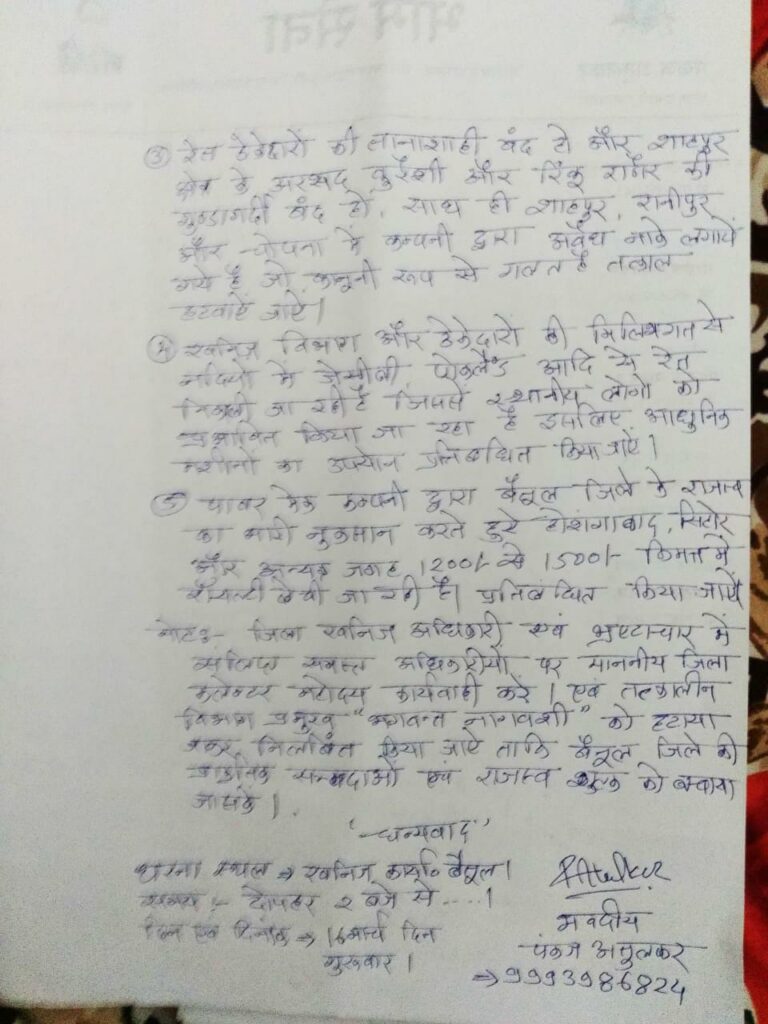 भीम सेना
③ रेत ठेकेदारों की तानाशाही बंद हो और शाहपुर
क्षेत्र के अरशद कुरैशी और रिंकू राठौर की
गुण्डागर्दी बंद हो, साथ ही शाहपुर, रानीपुर
और चोपना में कम्पनी द्वारा अवैध नाके लगाये
गये है जो कानूनी रूप से गलत है तत्काल
हटवाऐ जाऐ।
④ खनिज विभाग और ठेकेदारों की मिलिभगत से
नदियों में जेसीबी, पोकलैंड आदि से रेत
निकाली जा रही है जिससे स्थानीय लोगो को
प्रभावित किया जा रहा है इसलिए आधुनिक
मशीनों का उपयोग प्रतिबंधित किया जाऐ।
⑤ पावर मेक कम्पनी द्वारा बैतूल जिले के राजस्व
का भारी नुकसान करते हुऐ होशंगाबाद, सिहोर
और अन्यत्र जगह 1200/- से 1500/- किमत में
रॉयल्टी बेची जा रही है। प्रतिबंधित किया जाऐं
नोट:- जिला खनिज अधिकारी एवं भ्रष्टाचार में
संलिप्त समस्त अधिकारीयों पर माननीय जिला
कलेक्टर महोदय कार्यवाही करें। एवं तत्कालीन
विभाग प्रमुख "भगवन्त नागवंशी" को हटाया
जाकर निलंबित किया जाऐ ताकि बैतूल जिले की
प्राकृतिक सम्पदाओं एवं राजस्व शुल्क को बचाया
जासके।
"धन्यवाद"
धरना स्थल ⇒ खनिज कार्या० बैतूल।
समय :- दोपहर 2 बजे से ....।
दिन एवं दिनांक ⇒ 16 मार्च दिन
गुरूवार।
PAtulkar
भवदीय
पंकज अतुलकर
⇒ 9993986824